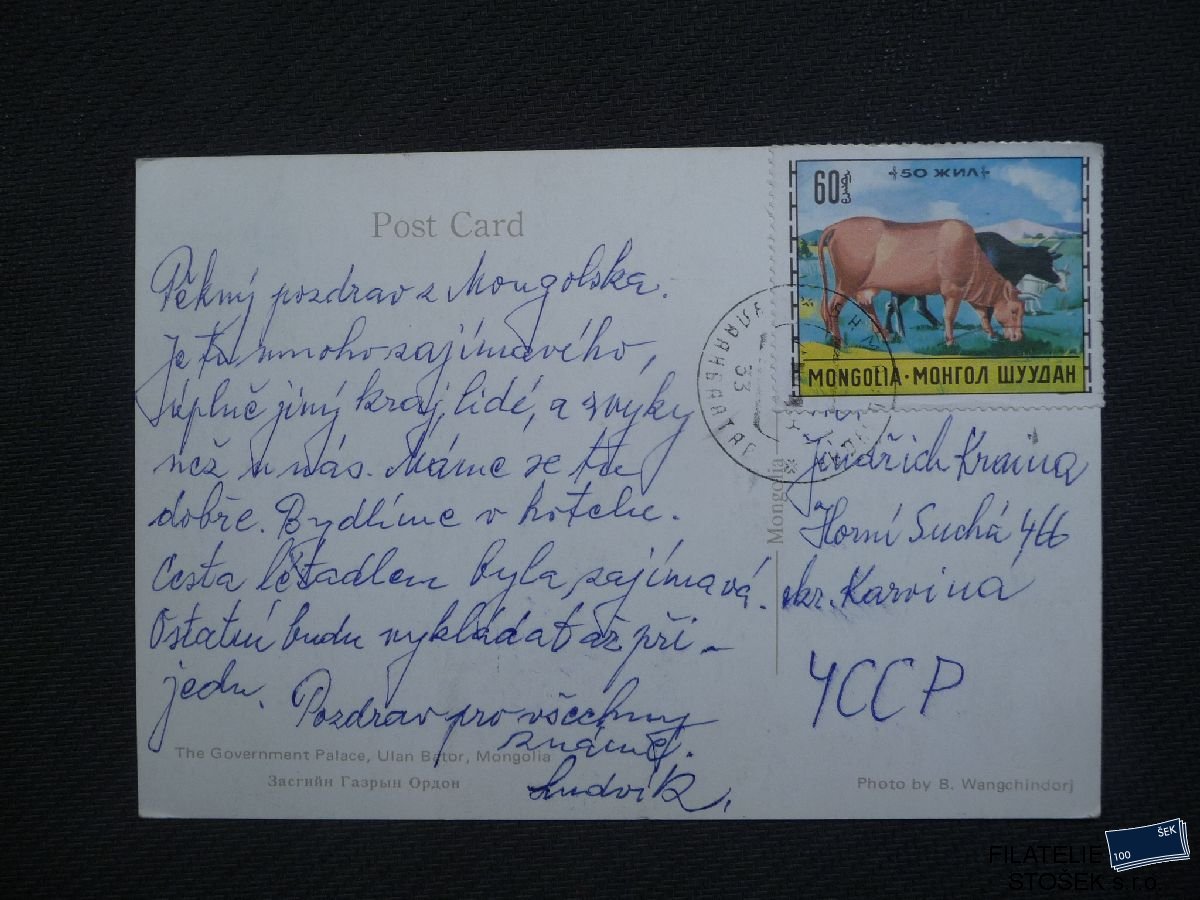 Post Card
Pěkný pozdrav z Mongolska.
Je tu mnoho zajímavého,
úplně jiný kraj, lidé, a zvyky
než u nás. Máme se tu
dobře. Bydlíme v hotelu.
Cesta letadlem byla zajímavá.
Ostatní budu vykládat až při-
jedu.
Pozdrav pro všechny
známé.
Ludvík.
The Government Palace, Ulan Bator, Mongolia
Засгийн Газрын Ордон
Mongolia
60
50 ЖИЛ
MONGOLIA · МОНГОЛ ШУУДАН
УЛААНБААТАР
33
Jindřich Kraina
Horní Suchá 466
okr. Karviná
ЧССР
Photo by B. Wangchindorj
100 ŠEK
FILATELIE
STOŠEK s.r.o.